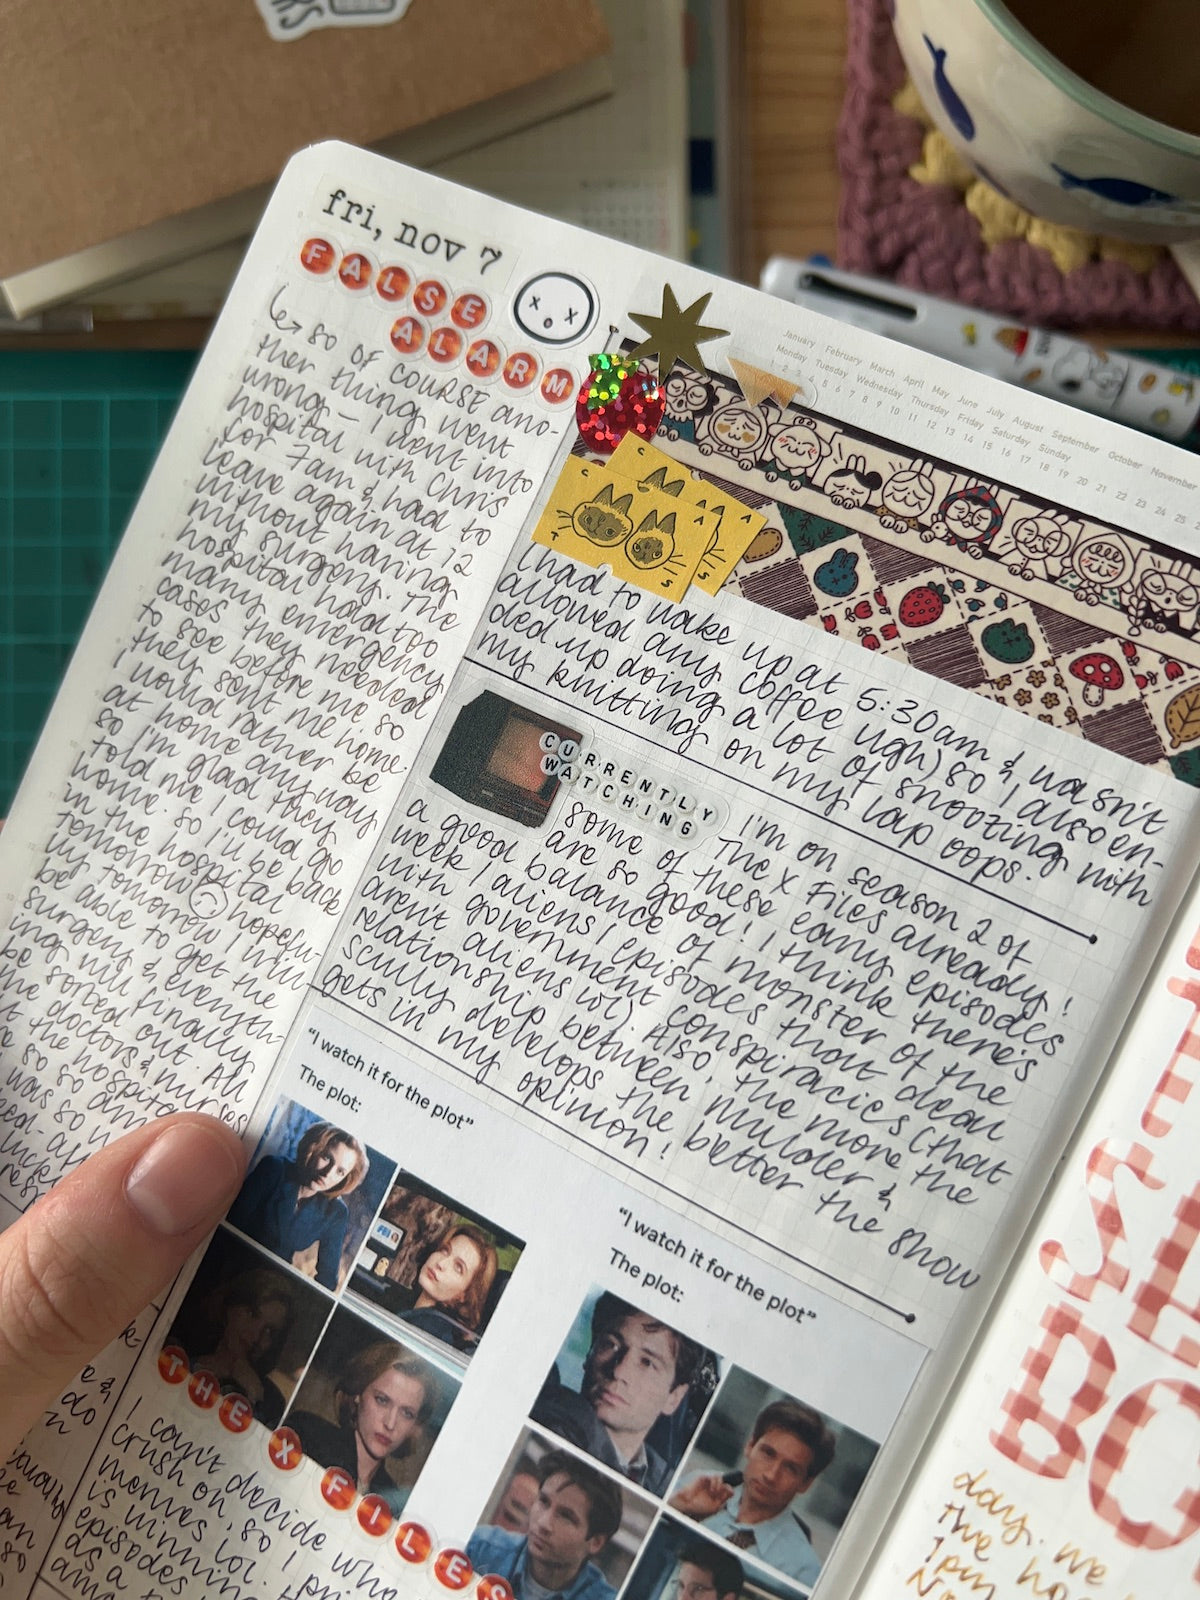 fri, nov 7
FALSE
ALARM
↳ so of COURSE ano-
ther thing went
wrong – I went into
hospital with Chris
for 7am & had to
leave again at 12
without having
my surgery. The
hospital had too
many emergency
cases they needed
to see before me so
they sent me home.
I would rather be
at home anyway
so I'm glad they
told me I could go
home. So I'll be back
in the hospital
tomorrow hopeful-
ly tomorrow I will
be able to get the
surgery & everyth-
ing will finally
be sorted out. All
the doctors & nurses
at the hospital
so so
was so
January February March April May June July August September October November
Monday Tuesday Wednesday Thursday Friday Saturday Sunday
1 2 3 4 5 6 7 8 9 10 11 12 13 14 15 16 17 18 19 20 21 22 23 24 25
CATS
I had to wake up at 5:30am & wasn't
allowed any coffee ugh) so I also en-
ded up doing a lot of snoozing with
my knitting on my lap oops.
CURRENTLY
WATCHING
I'm on season 2 of
The X Files already!
some of these early episodes
are so good! I think there's
a good balance of monster of the
week / aliens / episodes that deal
with government conspiracies (that
aren't aliens lol) Also, the more the
relationship between mulder &
scully develops the better the show
gets in my opinion!
"I watch it for the plot"
The plot:
FBI
"I watch it for the plot"
The plot:
THE X FILES
I can't decide who
crush on, so I
memes
is winnin lol.
episodes
as a
day. we
the
1pm